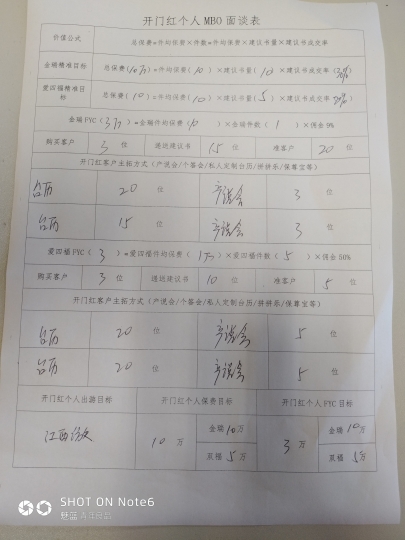 开门红个人 MBO 面谈表
价值公式 总保费=件均保费×件数=件均保费×建议书量×建议书成交率
金瑞精准目标 总保费(10万)=件均保费(10)×建议书量(10×建议书成交率(20%)
爱四福精准目标 总保费(10)=件均保费(10)×建议书量(5)×建议书成交率(20%)
金瑞 FYC(3万)=金瑞件均保费(10)×金瑞件数(1)×佣金9%
购买客户 3 位 递送建议书 15 位 准客户 20 位
开门红客户主拓方式(产说会/个答会/私人定制台历/拼拼乐/保尊宝等)
台历 20 位 产说会 3 位
台历 15 位 产说会 3 位
爱四福 FYC(3)=爱四福件均保费(1万)×爱四福件数(5)×佣金50%
购买客户 3 位 递送建议书 10 位 准客户 5 位
开门红客户主拓方式(产说会/个答会/私人定制台历/拼拼乐/保尊宝等)
台历 20 位 产说会 5 位
台历 20 位 产说会 5 位
开门红个人出游目标 开门红个人保费目标 开门红个人 FYC 目标
江西 10 万 金瑞 10万 3 万 金瑞 10万
双福 5万 双福 5万
SHOT ON Note6
魅蓝